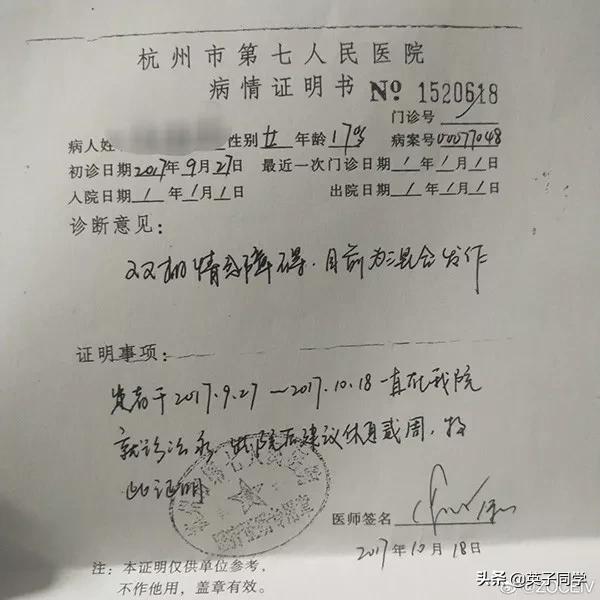 杭州市第七人民医院
病情证明书 No 1520618
门诊号 /
病人姓 性别 女 年龄 17岁 病案号 00077048
初诊日期 2017年9月27日 最近一次门诊日期 / 年 / 月 / 日
入院日期 / 年 / 月 / 日 出院日期 / 年 / 月 / 日
诊断意见:
双相情感障碍.目前为混合发作
证明事项:
患者于2017.9.27—2017.10.18一直在我院
就诊治疗 出院后建议休息贰周,特
此证明
医师签名
2017年10月18日
注:本证明仅供单位参考,
不作他用,盖章有效。
头条 @英子同学